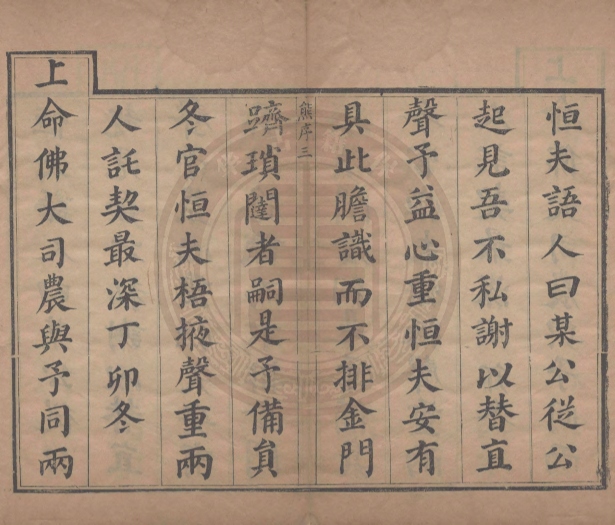 恒夫語人曰某公從公
起見吾不私謝以替直
聲予益心重恒夫安有
具此膽識而不排金門
熊序三
躋瑣闥者嗣是予備員
冬官恒夫梧掖聲重兩
人託契最深丁卯冬
上命佛大司農與予同兩